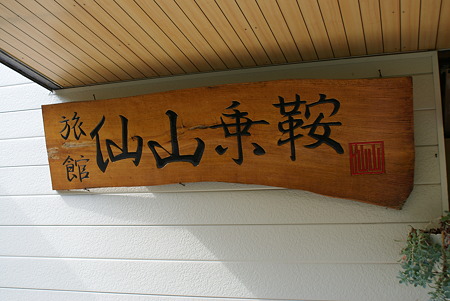 旅館
仙山乗鞍